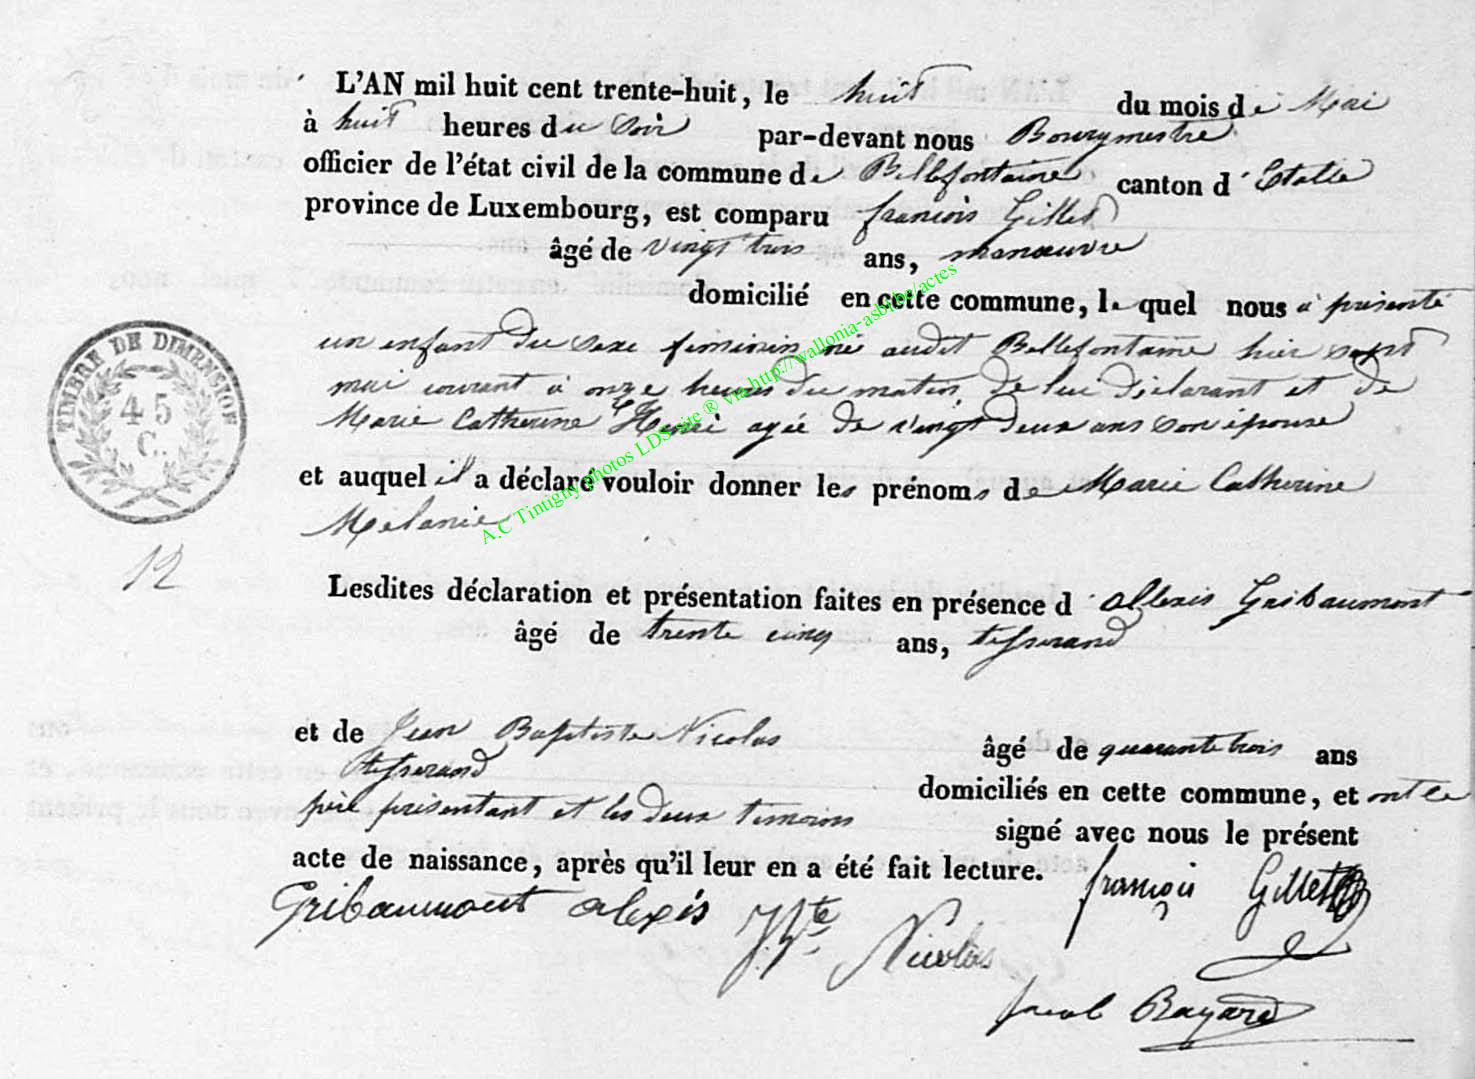 L'AN mil huit cent trente-huit, le huit du mois de Mai
à huit heures du soir par-devant nous Bourgmestre
officier de l'état civil de la commune de Bellefontaine canton d'Etalle
province de Luxembourg, est comparu françois Gillet
âgé de vingt trois ans, manœuvre
domicilié en cette commune, lequel nous à présenté
un enfant du sexe feminin né audit Bellefontaine hier sept
mai courant à onze heures du matin, de lui déclarant et de
Marie Catherine Henri agée de vingt deux ans son épouse
et auquel il a déclaré vouloir donner les prénoms de Marie Catherine
Melanie
Lesdites déclaration et présentation faites en présence d'allexis Gribaumont
âgé de trente cinq ans, tisserand
et de Jean Baptiste Nicolas âgé de quarante trois ans
tisserand domiciliés en cette commune, et ont le
père présentant et les deux temoins signé avec nous le présent
acte de naissance, après qu'il leur en a été fait lecture.
françois Gillet
Gribaumont alexis J.Bte Nicolas
Jacob Bayard
TIMBRE DE DIMENSION
45
C.
12
A.C Tintigny photos LDS site ® via http://wallonia-asbl.be/actes